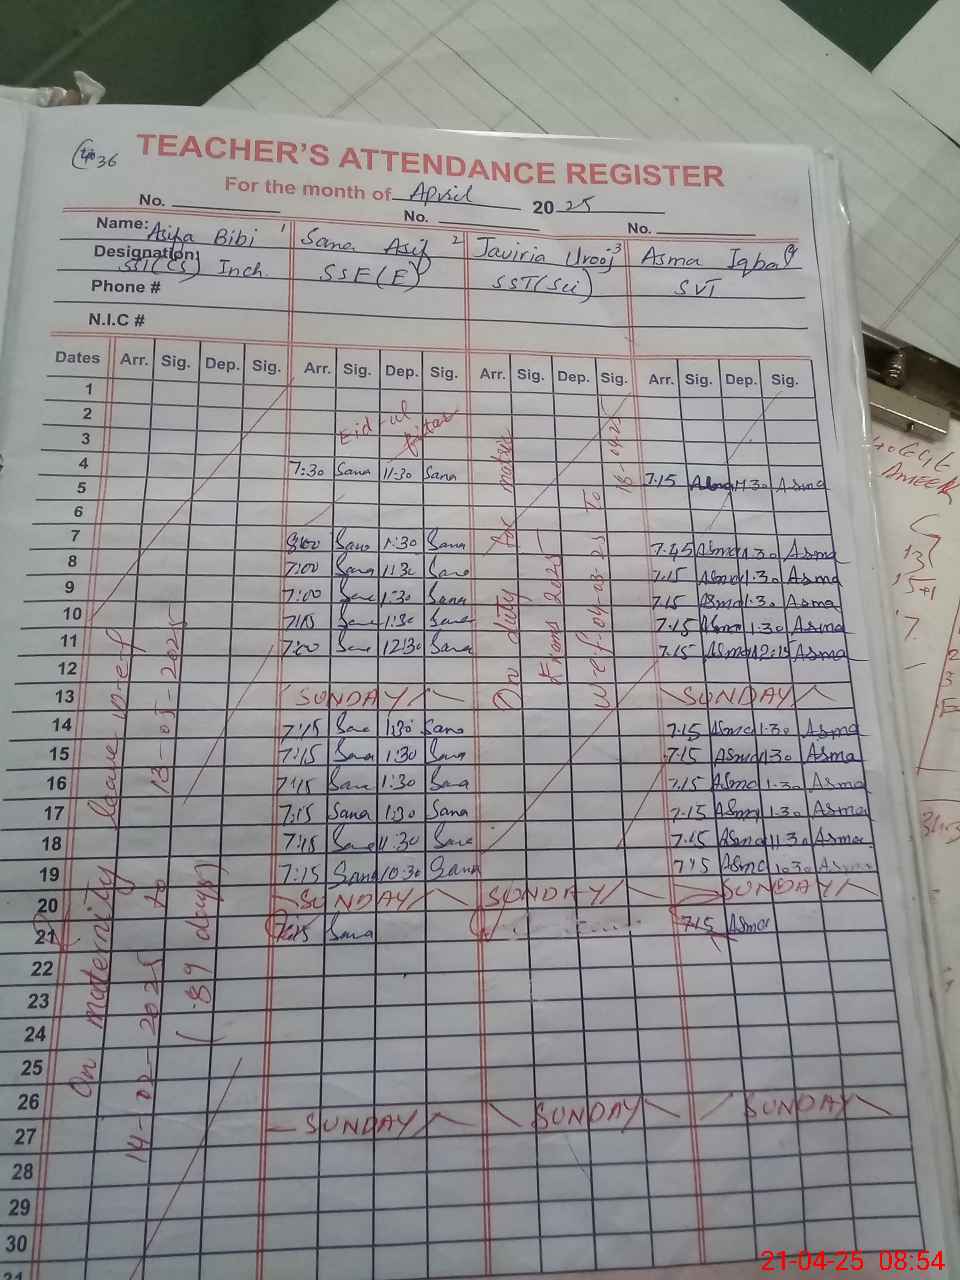 36
TEACHER'S ATTENDANCE REGISTER
For the month of April 2025
No. No. No.
Name: Asifa Bibi 1 Sana Asif 2 Javiria Urooj 3 Asma Iqbal
Designation: SST(CS) Inch. SSE(E) SST(Sci) SVT
Phone #
N.I.C #
Dates Arr. Sig. Dep. Sig. Arr. Sig. Dep. Sig. Arr. Sig. Dep. Sig. Arr. Sig. Dep. Sig.
1
2
Eid-ul
3
4
7:30 Sana 11:30 Sana 7.15 Asma 11.30 Asma
5
6
7
8:00 Sana 1:30 Sana 7.45 Asma 1.30 Asma
8
7:00 Sana 1:30 Sana 7.15 Asma 1.30 Asma
9
7:00 Sana 1:30 Sana 7.15 Asma 1.30 Asma
10
7:15 Sana 1:30 Sana 7.15 Asma 1.30 Asma
11
7:00 Sana 12:30 Sana 7.15 Asma 12:15 Asma
12
13 SUNDAY SUNDAY
14 7:15 Sana 1:30 Sana 7.15 Asma 1.30 Asma
15 7:15 Sana 1:30 Sana 7.15 Asma 1.30 Asma
16 7:15 Sana 1:30 Sana 7.15 Asma 1.30 Asma
17 7:15 Sana 1:30 Sana 7.15 Asma 1.30 Asma
18 7:15 Sana 11:30 Sana 7.15 Asma 11.30 Asma
19 7:15 Sana 10:30 Sana 7.15 Asma 10.30 Asma
20 SUNDAY SUNDAY SUNDAY
21 7:15 Sana 7.15 Asma
22
23
24
25
26
27 SUNDAY SUNDAY SUNDAY
28
29
30
31
On maternity leave w-e-f
14-02-2025 to 13-05-2025
(89 days)
On duty for matric
Exams 2025
w-e-f-04-03-25 To 18-04-25
21-04-25 08:54